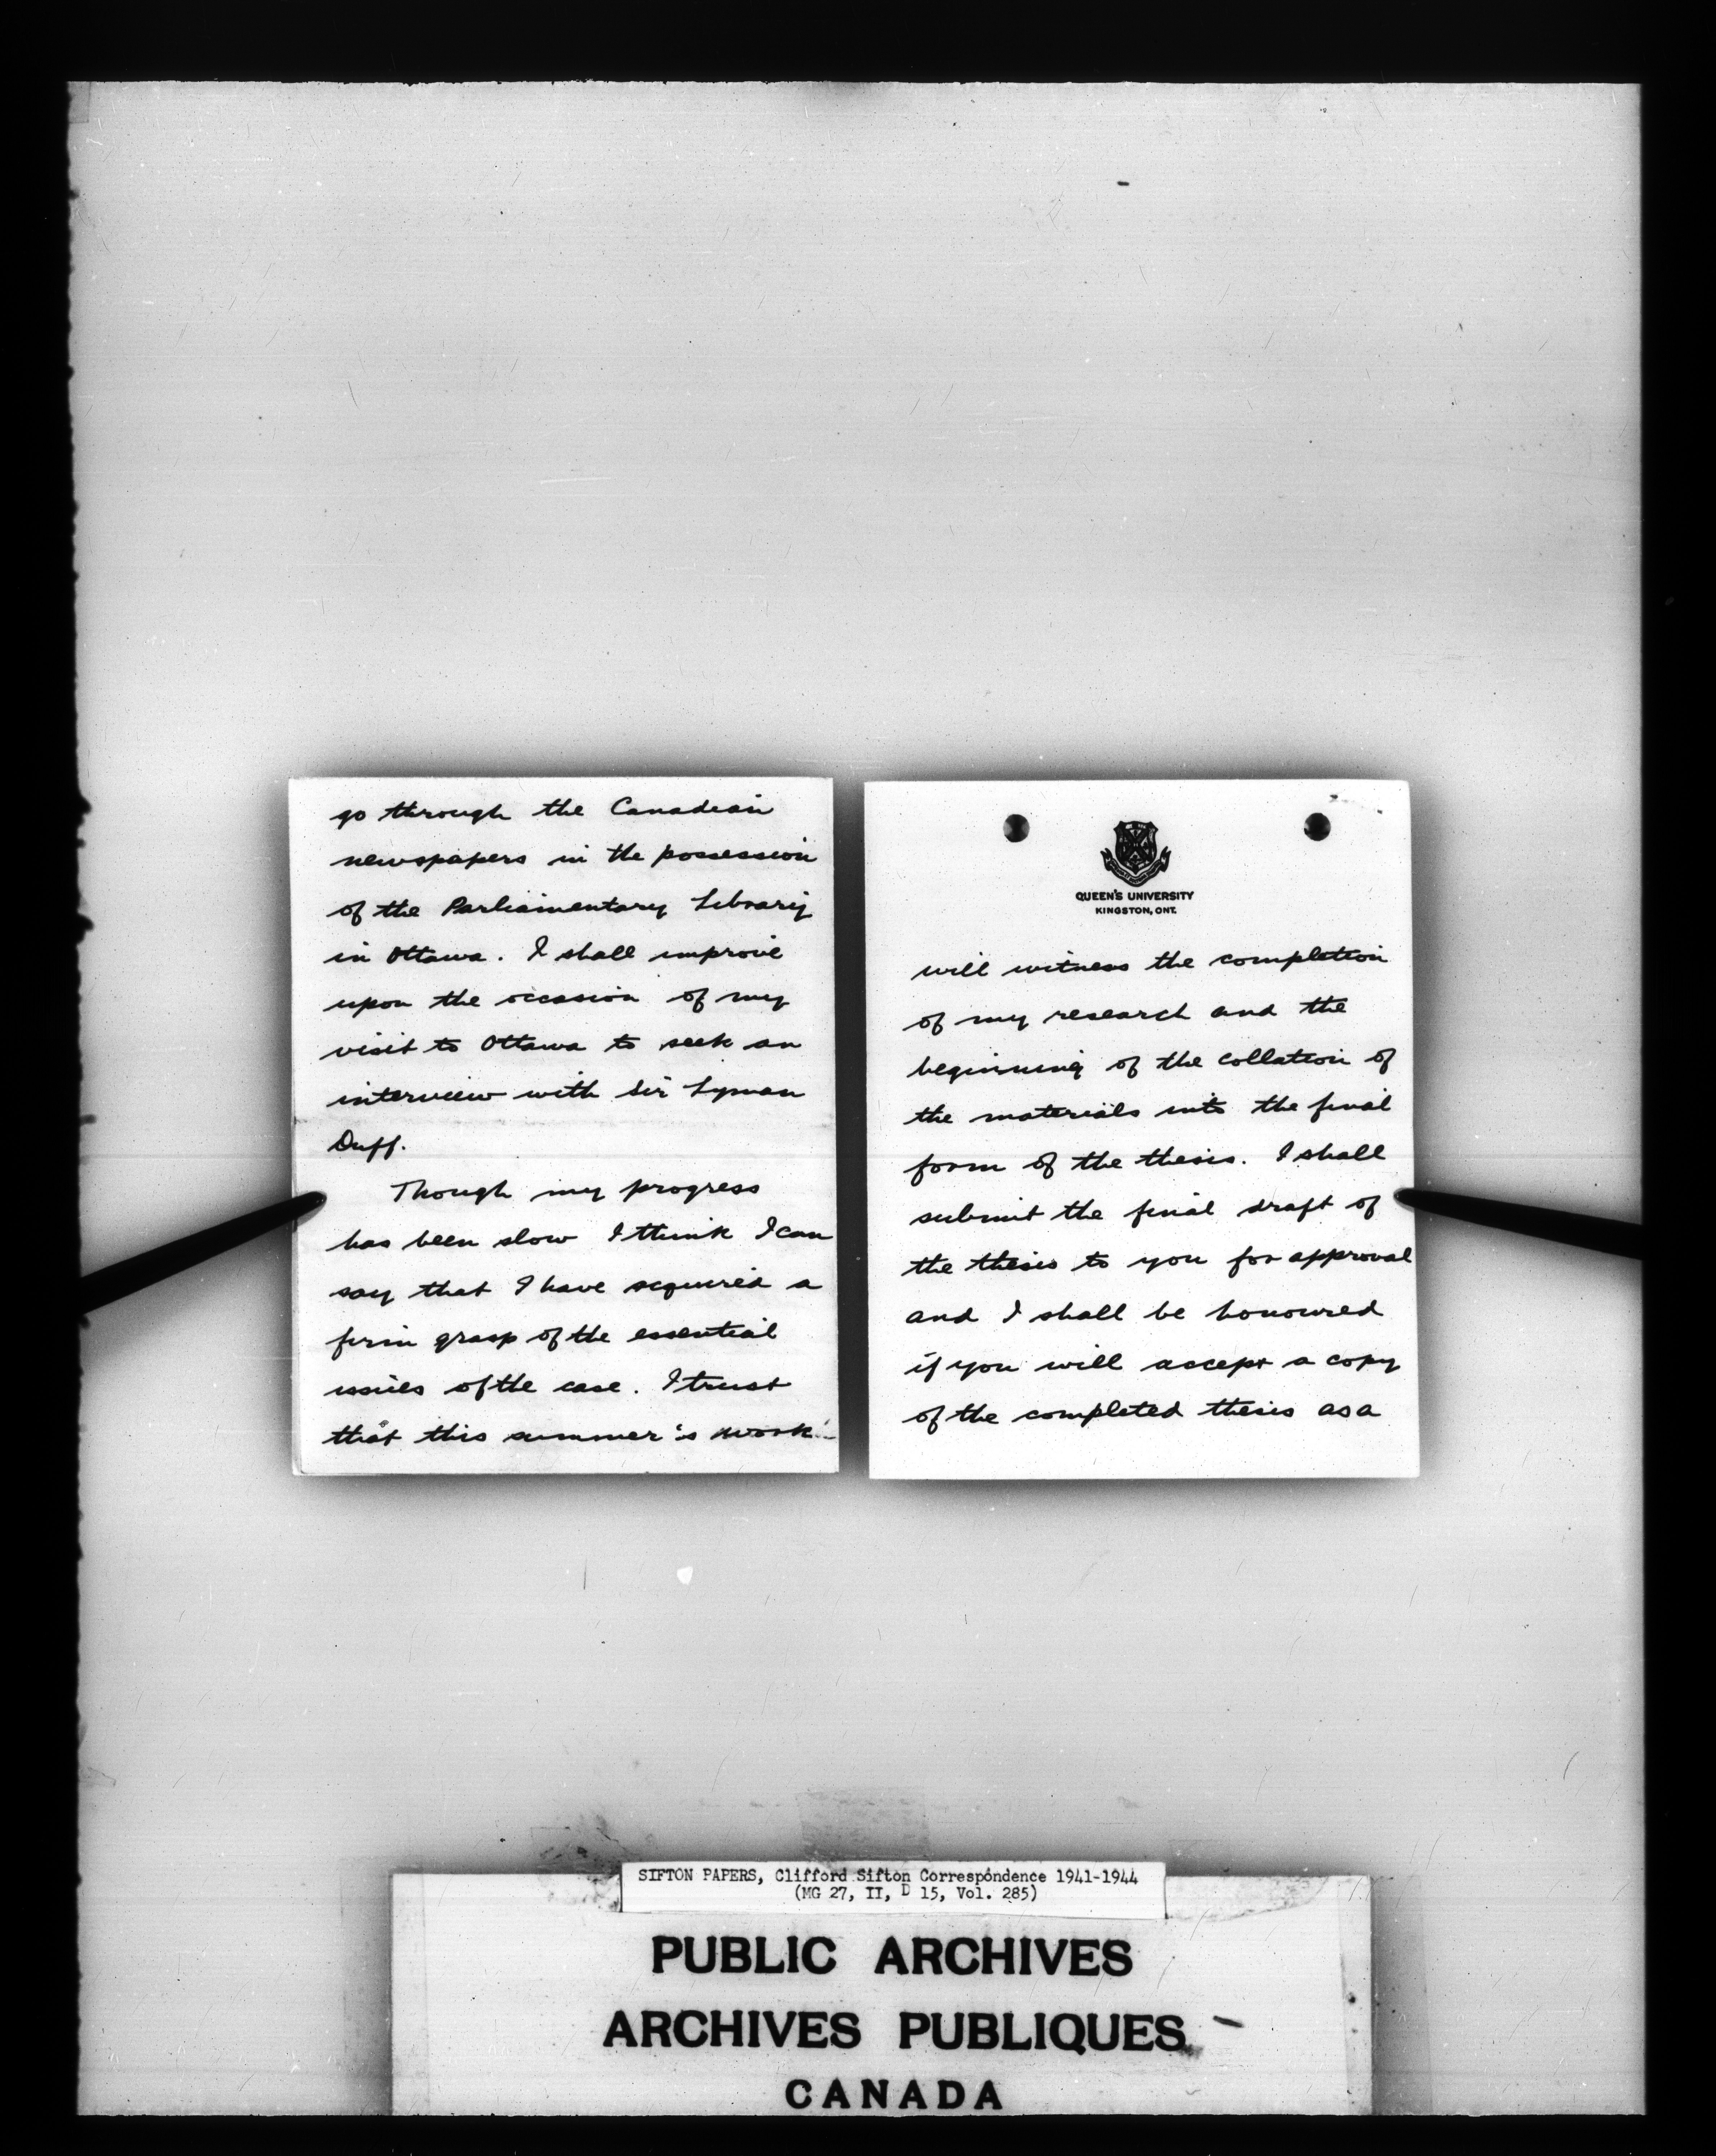 go through the Canadian
newspapers in the possession
of the Parliamentary Library
in Ottawa. I shall improve
upon the occasion of my
visit to Ottawa to seek an
interview with Sir Lyman
Duff.
Though my progress
has been slow I think I can
say that I have acquired a
firm grasp of the essential
issues of the case. I trust
that this summer's work
QUEEN'S UNIVERSITY
KINGSTON, ONT.
will witness the completion
of my research and the
beginning of the collation of
the materials into the final
form of the thesis. I shall
submit the final draft of
the thesis to you for approval
and I shall be honoured
if you will accept a copy
of the completed thesis as a
SIFTON PAPERS, Clifford Sifton Correspondence 1941-1944
(MG 27, II, D 15, Vol. 285)
PUBLIC ARCHIVES
ARCHIVES PUBLIQUES
CANADA